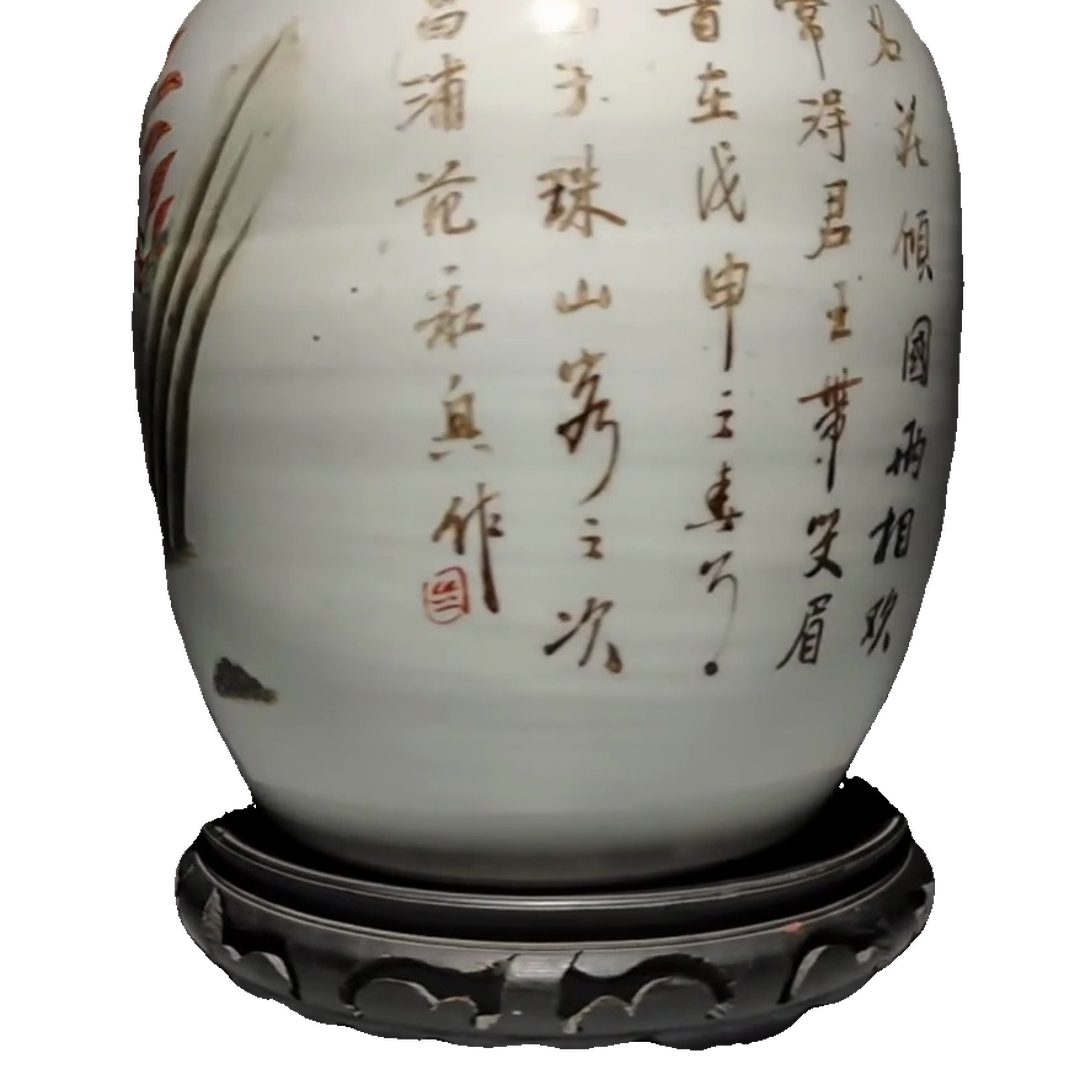 名花傾國兩相歡
常得君王帶笑眉
旹在戊申之春月
于珠山客之次
昌浦范永興作